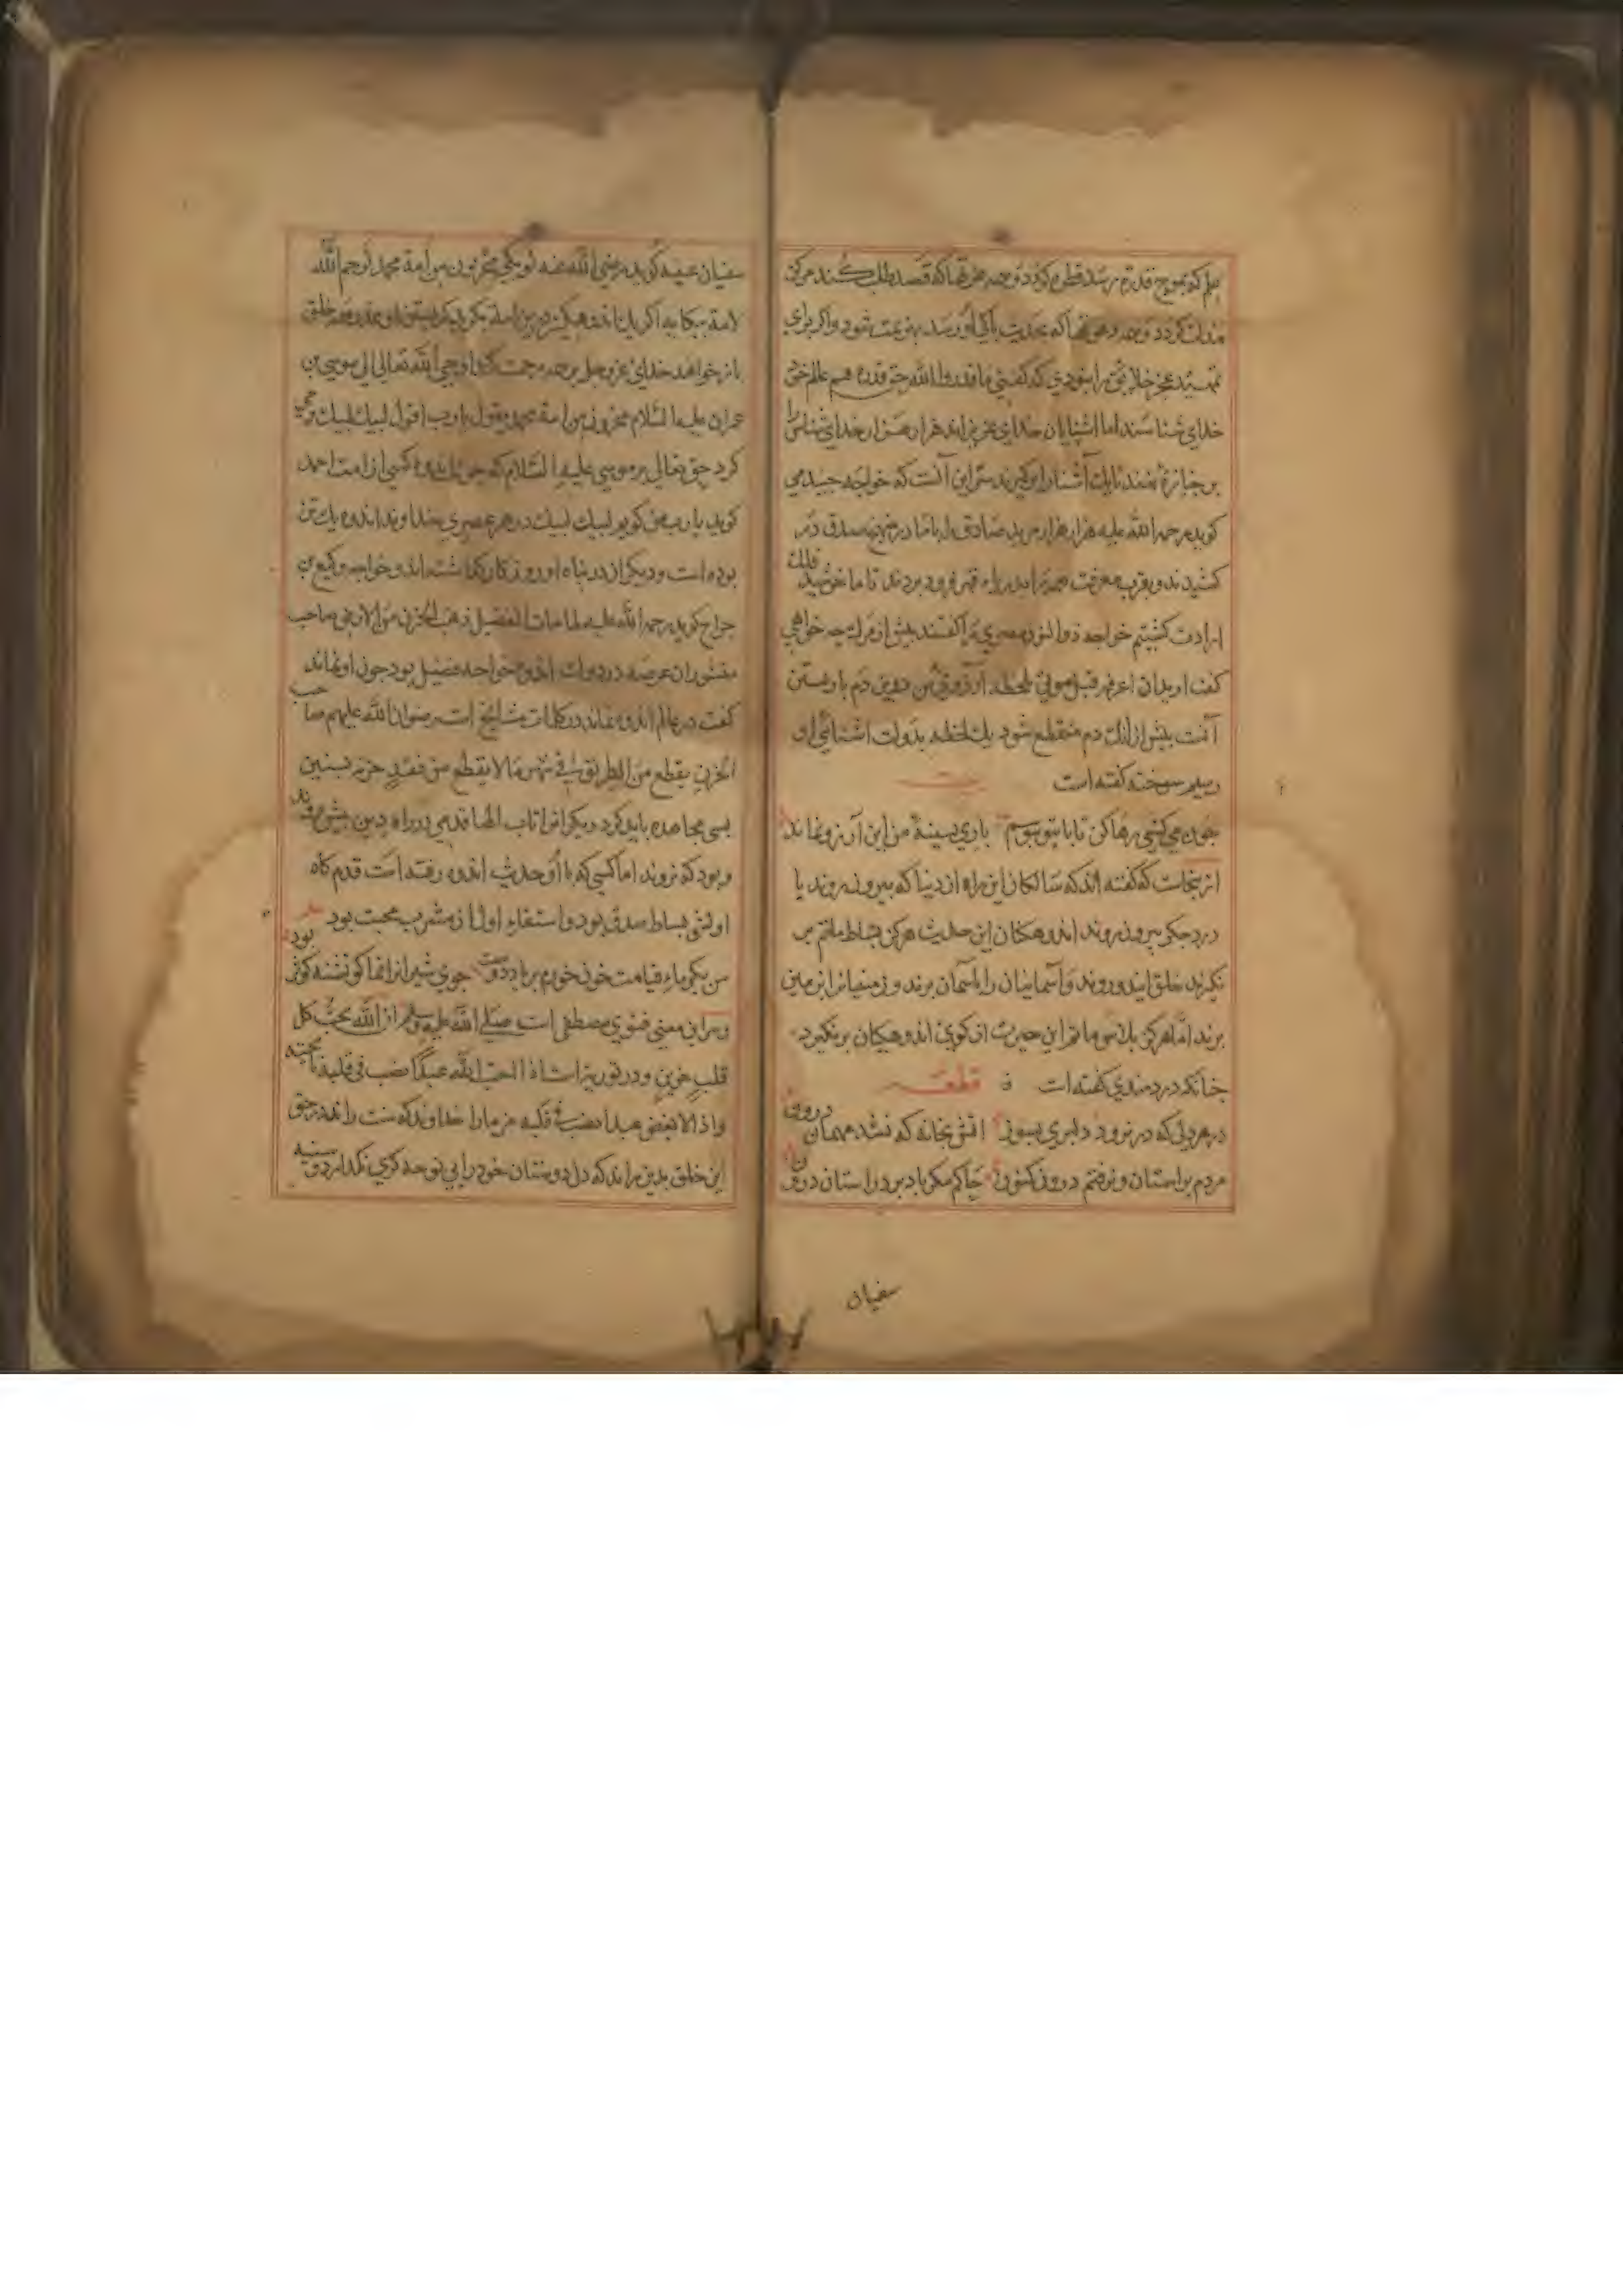 علم که بموج قدم رسد قطره کردد و همه عرتها که قصد طلب کنند مرکز
مذلت کردد و همه وهمها که بحدیث پاکی او رسد بهزیمت شود و اکر برای
عجز خلایق را بنودی که کفتی ما قدروا الله حق قدره هم عالم خود
خدای شناسند اما اشنایان خدای عزیز اند هزار هزار خدای شناس را
بر جنازه نهند تا یک آشنا را بر کیرند سر این آنست که خواجه جنید می
کوید رحمة الله علیه هزار هزار مرید صادق را با ما در نهج صدق در
کشیدند و بقرب معرفت همه را بدریاء قهر فرو بردند تا ما خورشید فلک
ارادت کشتیم خواجه ذوالنون مصری را کفتند پیش از مرک چه خواهی
کفت ارید ان اعرفه قبل موتی بلحظه آرزوی من درین دم بازپسین
آنست پیش از آنک دم منقطع شود یک لحظه بدولت اشنایی او
رسیم سوخته کفته است بیت
چون می کشی رها کن تا با تو بوسم باری بسینهٔ من این آرزو نماند
از ینجاست که کفته اند که سالکان این راه از دنیا که بیرون روند با
درد جکر بیرون روند اندوهکنان این حدیث هرکز بساط ماتم بر
نکیرند خلق ایند و روند و آسمانیان را بآسمان برند و زمینیانرا بزمین
برند اما هرکز پلاس و ماتم این حدیث از کوی اندوهکنان بر نکیرد
چنانکه دردمندی کفته است قطعه
در هر دلی که در نرود دلبری بیرون افتی بخانه که نشد میهمان درون
مردم بر استان و نرفتم درون کنون خاکم مکر باد برد ز استان درون
سفیان
سفیان عیینه کوید رضی الله عنه لو بکی محزون من امة محمد لرحم الله
لامة ببکایه اکر یک اندوهکین درین امة بکرید بکریستن او همه خلق
باز خواهد خدای عز و جل بر همه رحمت کند اوحی الله تعالی الی موسی بن
عمران علیه السلام محزون من امة محمد یقول یا رب اقول لبیک لبیک وحی
کرد حق تعالی بر موسی علیه السلام که چون اندوه کسی از امت احمد
کوید یا رب من کویم لبیک لبیک در هر عصری خداوند اندوه یک تن
بوده است و دیکران در پناه او روزکار کذاشته اند و خواجه وکیع بن
جراح کوید رحمة الله علیه لما مات الفضیل ذهب الحزن من الارض صاحب
منشور ان عرصه در دولت اندوه خواجه فضیل بود چون او نماند
کفت در عالم اندوه نماند در کلمات مشایخ است رضوان الله علیهم صاحب
الحزن یقطع من الطریق فی شهر ما لا یقطع من فقد حزنه سنین
بسی مجاهده باید کرد دیکرانرا تاب الها قدمی در راه دین پیش روند
و بود که نروند اما کسی که با او حدیث اندوه رفته است قدم کاه
اولش بساط صدق بود و استقاء اول از مشرب محبت بود
من بکرماء قیامت خون خورم بر یاد دوست جوی شیر انرا نما کو تشنه کوثر بود
و سر این معنی فتوی مصطفی است صلی الله علیه وسلم ان الله یحب کل
قلب حزین و در توریة است اذا احب الله عبدا نصب فی قلبه نایحة
و اذا ابغض عبدا نصب فی قلبه مزمارا خداوند که منت را نه در حق
این خلق بدین براند که دل دوستان خود را بی نوحه کری نکذارد و سینه